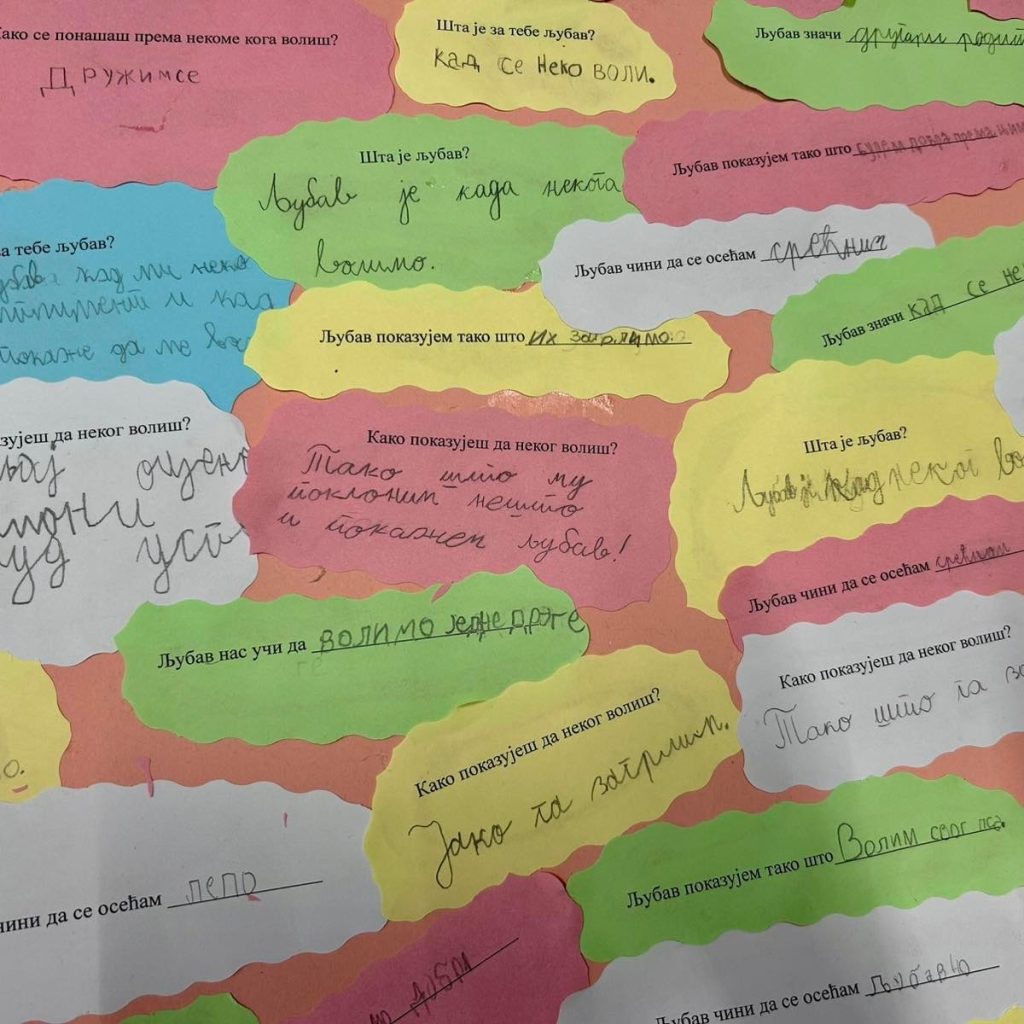 ако се понашаш према некоме кога волиш?
Дружимсе
Шта је за тебе љубав?
кад се неко воли.
Љубав значи другари
Шта је љубав?
Љубав је када некога
волимо.
Љубав показујем тако што будем добра према
за тебе љубав?
кад ми неко
и кад
покаже да ме
Љубав чини да се осећам срећнија
Љубав значи кад се
Љубав показујем тако што их загрлимо.
зујеш да неког волиш?
Како показујеш да неког волиш?
Тако што му
поклоним нешто
и покажем љубав!
Шта је љубав?
Љубав је кад неког
Љубав чини да се осећам срећном
Љубав нас учи да волимо једне друге
Како показујеш да неког волиш?
Јако га загрлим.
Како показујеш да неког волиш?
Тако што га
Љубав показујем тако што Волим свог пса.
чини да се осећам лепо
добри
Љубав чини да се осећам љубавно